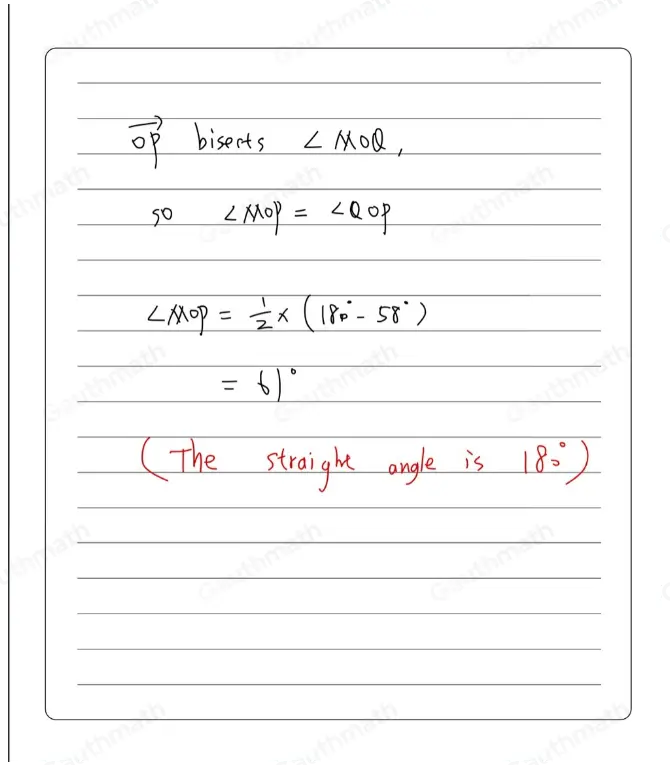 →OP bisects ∠MOQ,
so ∠MOP = ∠QOP
∠MOP = 1/2 × (180° - 58°)
= 61°
(The straight angle is 180°)
Gauthmath